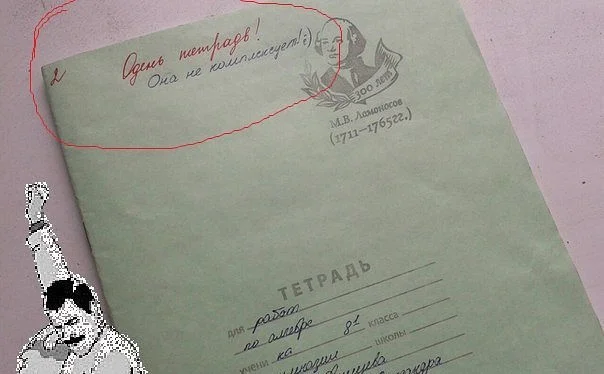 2
Одень тетрадь!
Она не комплексует! :)
300 лет
М.В. Ломоносов
(1711–1765гг.)
ТЕТРАДЬ
для работ
по алгебре
учени ка 8¹ класса
школы